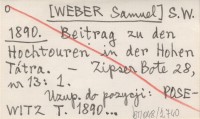 o [WEBER Samuel] S.W.
1890. Beitrag zu den
Hochtouren in der Hohen
Tátra. - Zipser Bote 28,
nr 13: 1.
Uzup. do pozycji: POSE-
WITZ T. 1890...